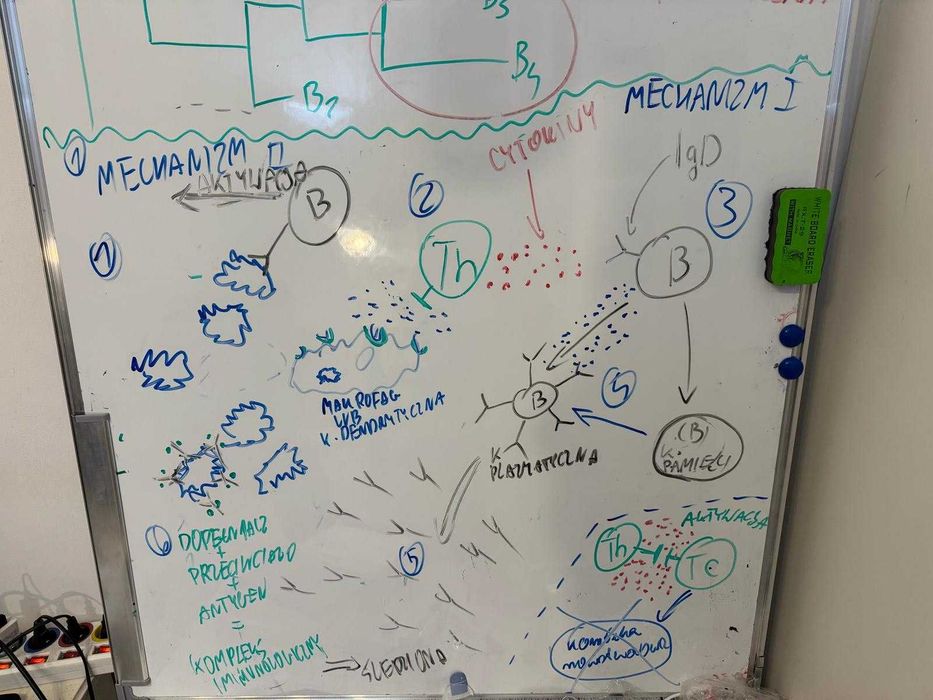 B₂
B₄
MECHANIZM I
① MECHANIZM II
CYTOKINY
IgD
AKTYWACJA
B
②
③
①
Th
B
WHITE BOARD ERASER
MAKROFAG
LUB
K. DENDRYTYCZNA
B
K.
PLAZMATYCZNA
(B)
K.
PAMIĘCI
⑥ DOPEŁNIACZ
+
PRZECIWCIAŁO
+
ANTYGEN
=
KOMPLEKS
IMMUNOLOGICZNY
⇒ ŚLEDZIONA
⑤
AKTYWACJA
Th
Tc
komórka
nowotworowa